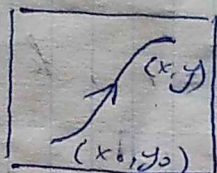 (x,y)
(x₀,y₀)